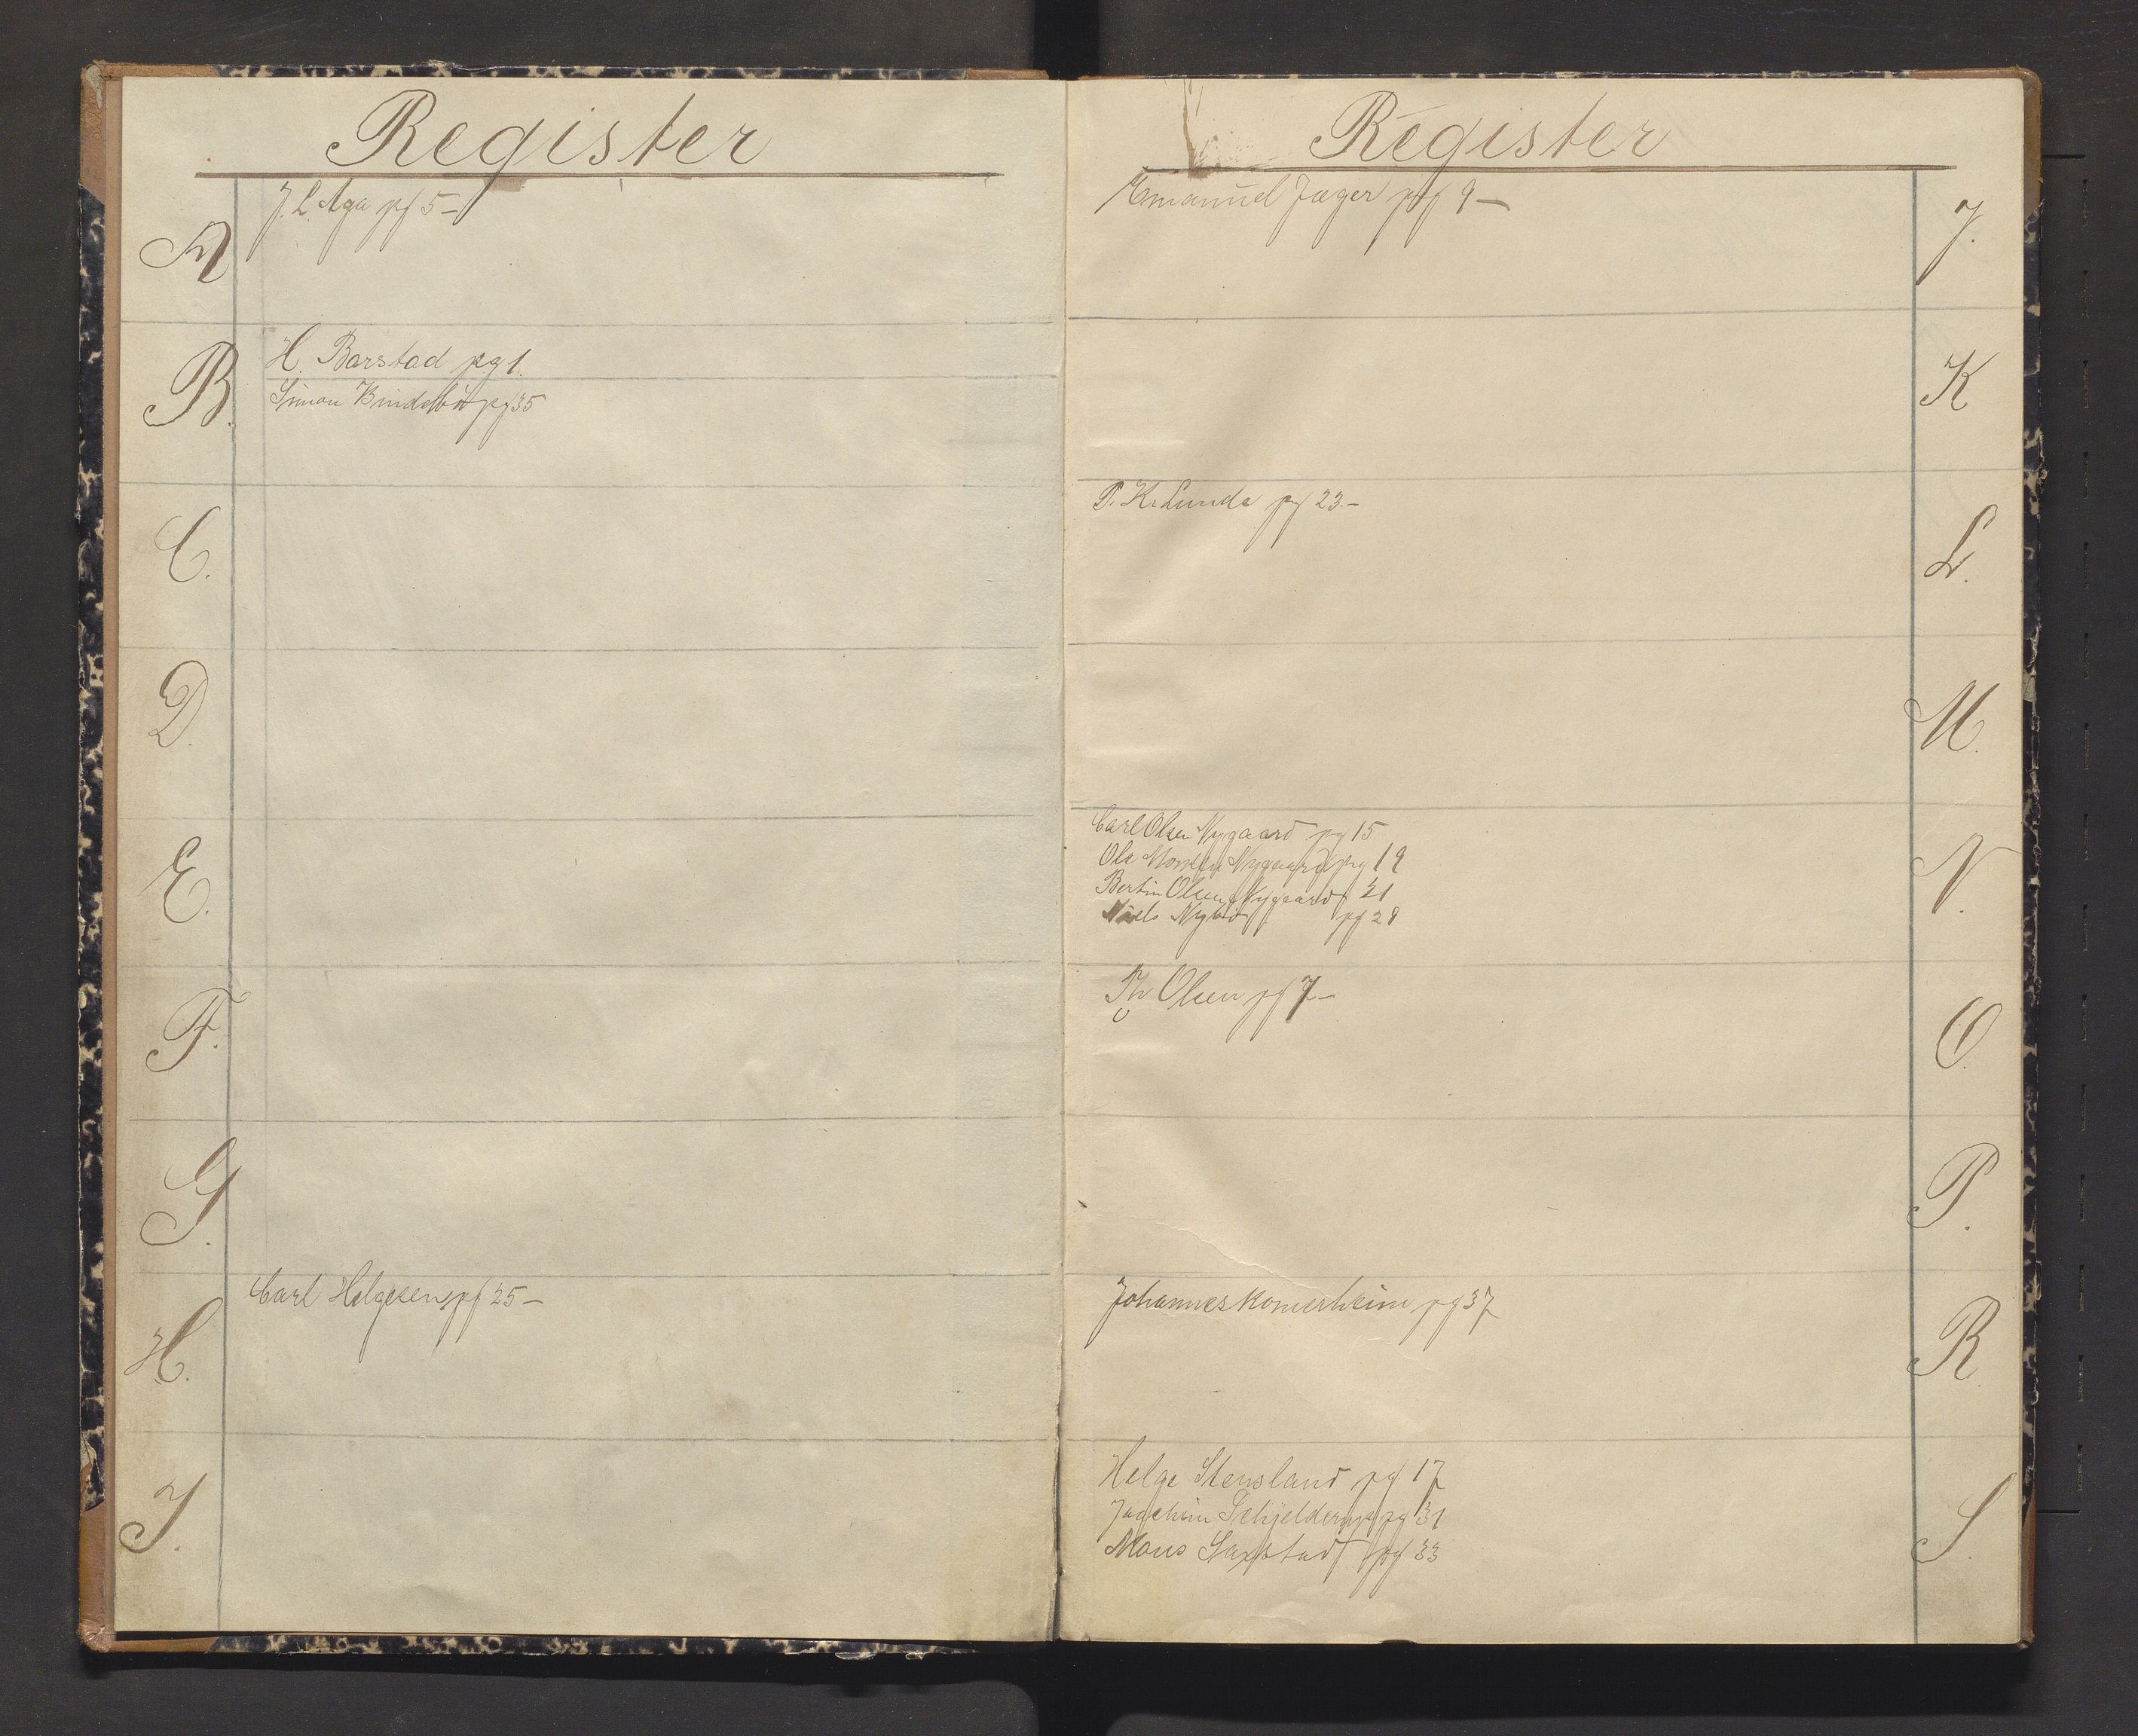 Register
A
J. L. Aga pg 5 –
B.
H. Barstad pg 1.
Simon Bindebö pg 35
C.
D.
E.
F.
G.
H.
Carl Helgesen pg 25 –
I.
Register
Emanuel Jæger pg 9 –
J.
K
P. Kr Lunde pg 23 –
L.
M.
Carl Olsen Nygaard pg 15
Ole Monsen Nygaard pg 19
Bertin Olsen Nygaard 21
Niels Nybö pg 28
N.
Th Olsen pg 7 –
O.
P.
Johannes Romerheim pg 37
R.
Helge Stensland pg 17
Joachim Schjelderup pg 31
Mons pg 33
S.